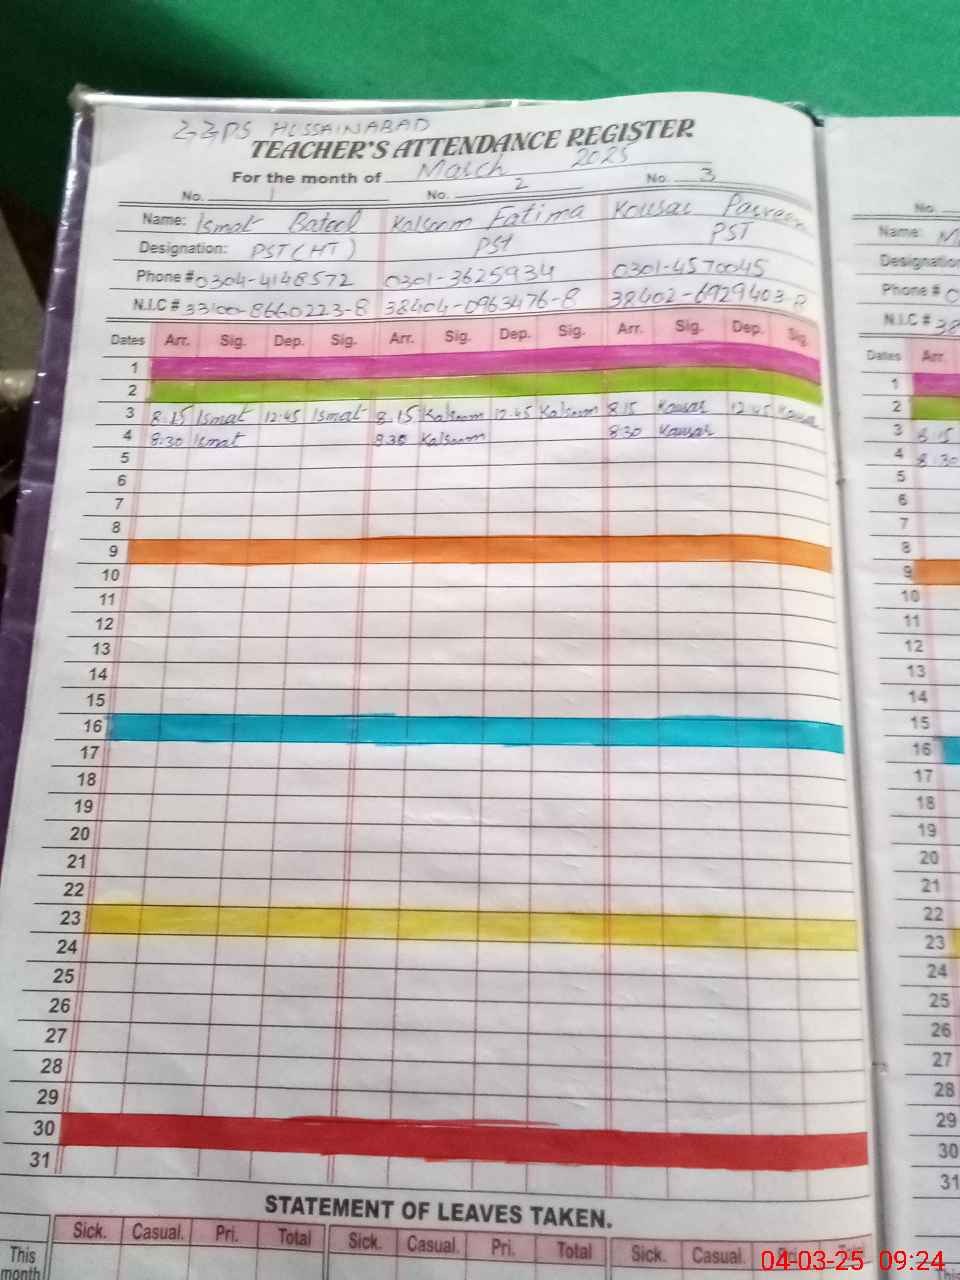 GGPS HUSSAINABAD
TEACHER'S ATTENDANCE REGISTER
For the month of March 2025
No. 1 No. 2 No. 3
Name: Ismat Batool Kalsoom Fatima Kousar Parveen
Designation: PST (HT) PST PST
Phone # 0304-4148572 0301-3625934 0301-4570045
N.I.C # 33100-8660223-8 38404-0963476-8 38402-6929403-8
Dates Arr. Sig. Dep. Sig. Arr. Sig. Dep. Sig. Arr. Sig. Dep. Sig.
1
2
3 8.15 Ismat 12.45 Ismat 8.15 Kalsoom 12.45 Kalsoom 8.15 Kousar 12.45 Kousar
4 8:30 Ismat 8.30 Kalsoom 8:30 Kousar
5
6
7
8
9
10
11
12
13
14
15
16
17
18
19
20
21
22
23
24
25
26
27
28
29
30
31
STATEMENT OF LEAVES TAKEN.
Sick. Casual. Pri. Total Sick. Casual. Pri. Total Sick. Casual.
This
month
No.
Name:
Designation
Phone #
N.I.C # 38
Dates Arr.
1
2
3 8.15
4 8.30
5
6
7
8
9
10
11
12
13
14
15
16
17
18
19
20
21
22
23
24
25
26
27
28
29
30
31
04-03-25 09:24